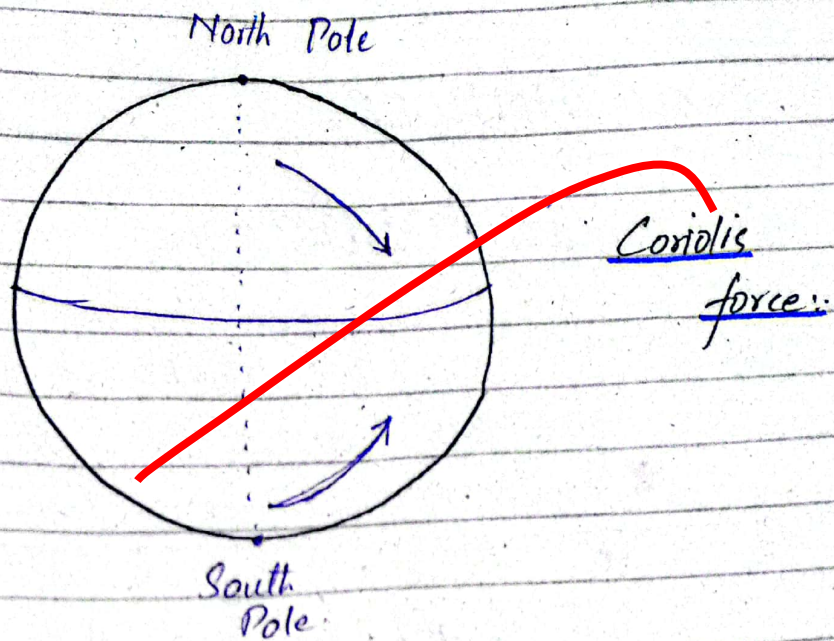 North Pole
Coriolis
force:.
South
Pole.